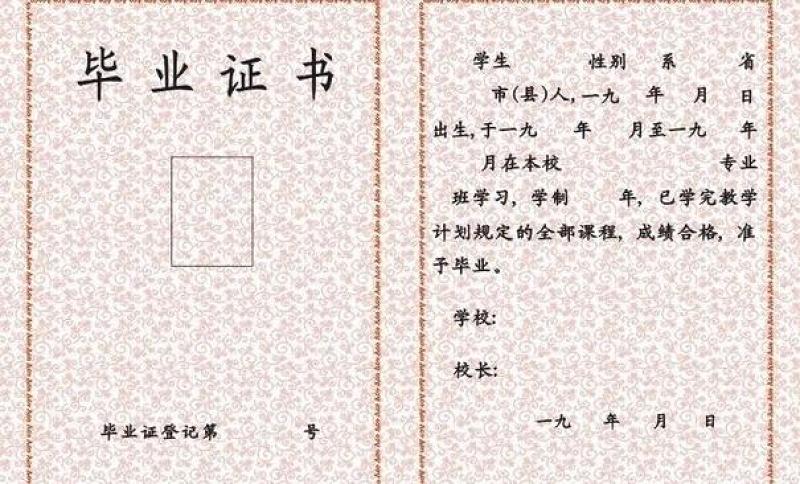 毕业证书
毕业证登记第 号
学生 性别 系 省
市(县)人,一九 年 月 日
出生,于一九 年 月至一九 年
月在本校 专业
班学习, 学制 年, 已学完教学
计划规定的全部课程, 成绩合格, 准
予毕业。
学校:
校长:
一九 年 月 日